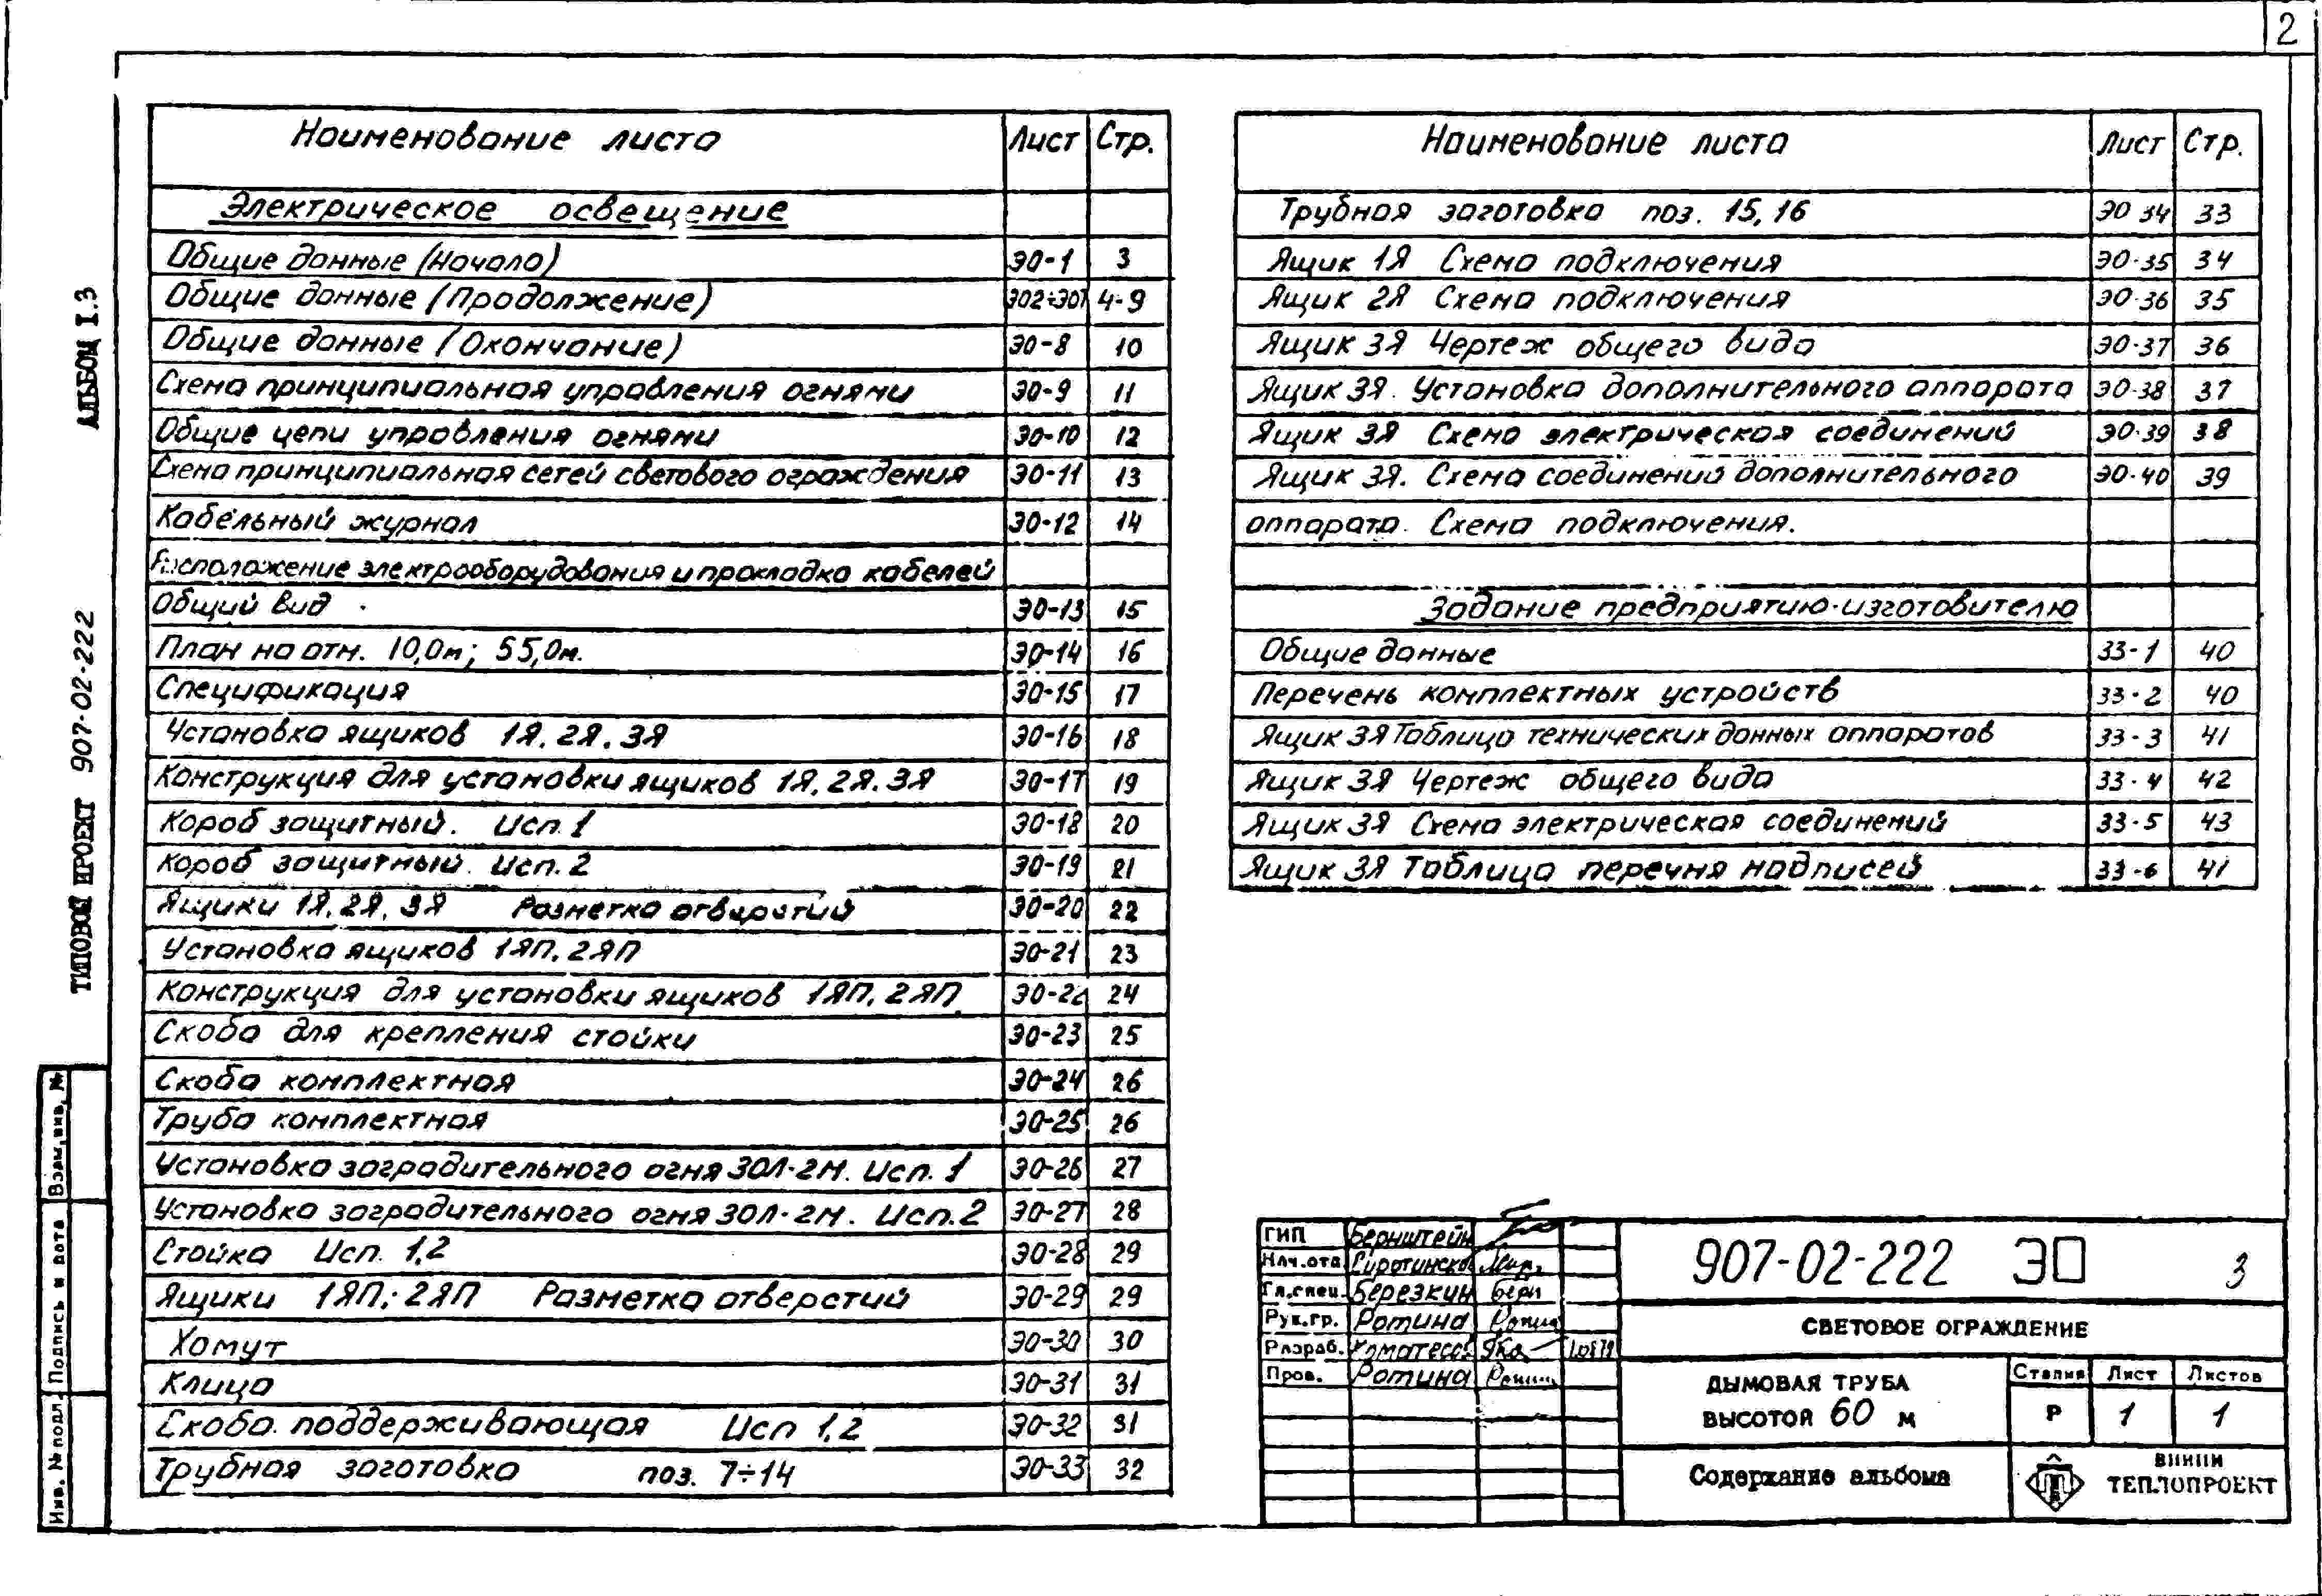 2
АЛЬБОМ I.3
ТИПОВОЙ ПРОЕКТ 907-02-222
Взам.инв.№
Подпись и дата
Инв.№ подл.
Наименование листа Лист Стр.
Электрическое освещение
Общие данные (Начало) ЭО-1 3
Общие данные (Продолжение) ЭО2÷ЭО7 4÷9
Общие данные (Окончание) ЭО-8 10
Схема принципиальная управления огнями ЭО-9 11
Общие цепи управления огнями ЭО-10 12
Схема принципиальная сетей светового ограждения ЭО-11 13
Кабельный журнал ЭО-12 14
Расположение электрооборудования и прокладка кабелей
Общий вид ЭО-13 15
План на отм. 10,0м; 55,0м. ЭО-14 16
Спецификация ЭО-15 17
Установка ящиков 1Я, 2Я, 3Я ЭО-16 18
Конструкция для установки ящиков 1Я, 2Я, 3Я ЭО-17 19
Короб защитный. Исп. 1 ЭО-18 20
Короб защитный. Исп. 2 ЭО-19 21
Ящики 1Я, 2Я, 3Я Разметка отверстий ЭО-20 22
Установка ящиков 1ЯП, 2ЯП ЭО-21 23
Конструкция для установки ящиков 1ЯП, 2ЯП ЭО-22 24
Скоба для крепления стойки ЭО-23 25
Скоба комплектная ЭО-24 26
Труба комплектная ЭО-25 26
Установка заградительного огня ЗОЛ-2М. Исп. 1 ЭО-26 27
Установка заградительного огня ЗОЛ-2М. Исп. 2 ЭО-27 28
Стойка Исп. 1,2 ЭО-28 29
Ящики 1ЯП; 2ЯП Разметка отверстий ЭО-29 29
Хомут ЭО-30 30
Клица ЭО-31 31
Скоба поддерживающая Исп 1,2 ЭО-32 31
Трубная заготовка поз. 7÷14 ЭО-33 32
Наименование листа Лист Стр.
Трубная заготовка поз. 15, 16 ЭО 34 33
Ящик 1Я Схема подключения ЭО-35 34
Ящик 2Я Схема подключения ЭО-36 35
Ящик 3Я Чертеж общего вида ЭО-37 36
Ящик 3Я. Установка дополнительного аппарата ЭО-38 37
Ящик 3Я Схема электрическая соединений ЭО-39 38
Ящик 3Я. Схема соединений дополнительного ЭО-40 39
аппарата. Схема подключения.
Задание предприятию-изготовителю
Общие данные ЗЗ-1 40
Перечень комплектных устройств ЗЗ-2 40
Ящик 3Я Таблица технических данных аппаратов ЗЗ-3 41
Ящик 3Я Чертеж общего вида ЗЗ-4 42
Ящик 3Я Схема электрическая соединений ЗЗ-5 43
Ящик 3Я Таблица перечня надписей ЗЗ-6 41
ГИП Бернштейн
Нач.отд.
Гл.спец. Березкин
Рук.гр. Ротина
Разраб.
Пров. Ротина
907-02-222 ЭО 3
СВЕТОВОЕ ОГРАЖДЕНИЕ
ДЫМОВАЯ ТРУБА
ВЫСОТОЙ 60 м
Стадия Лист Листов
Р 1 1
Содержание альбома
ВНИПИ
ТЕПЛОПРОЕКТ